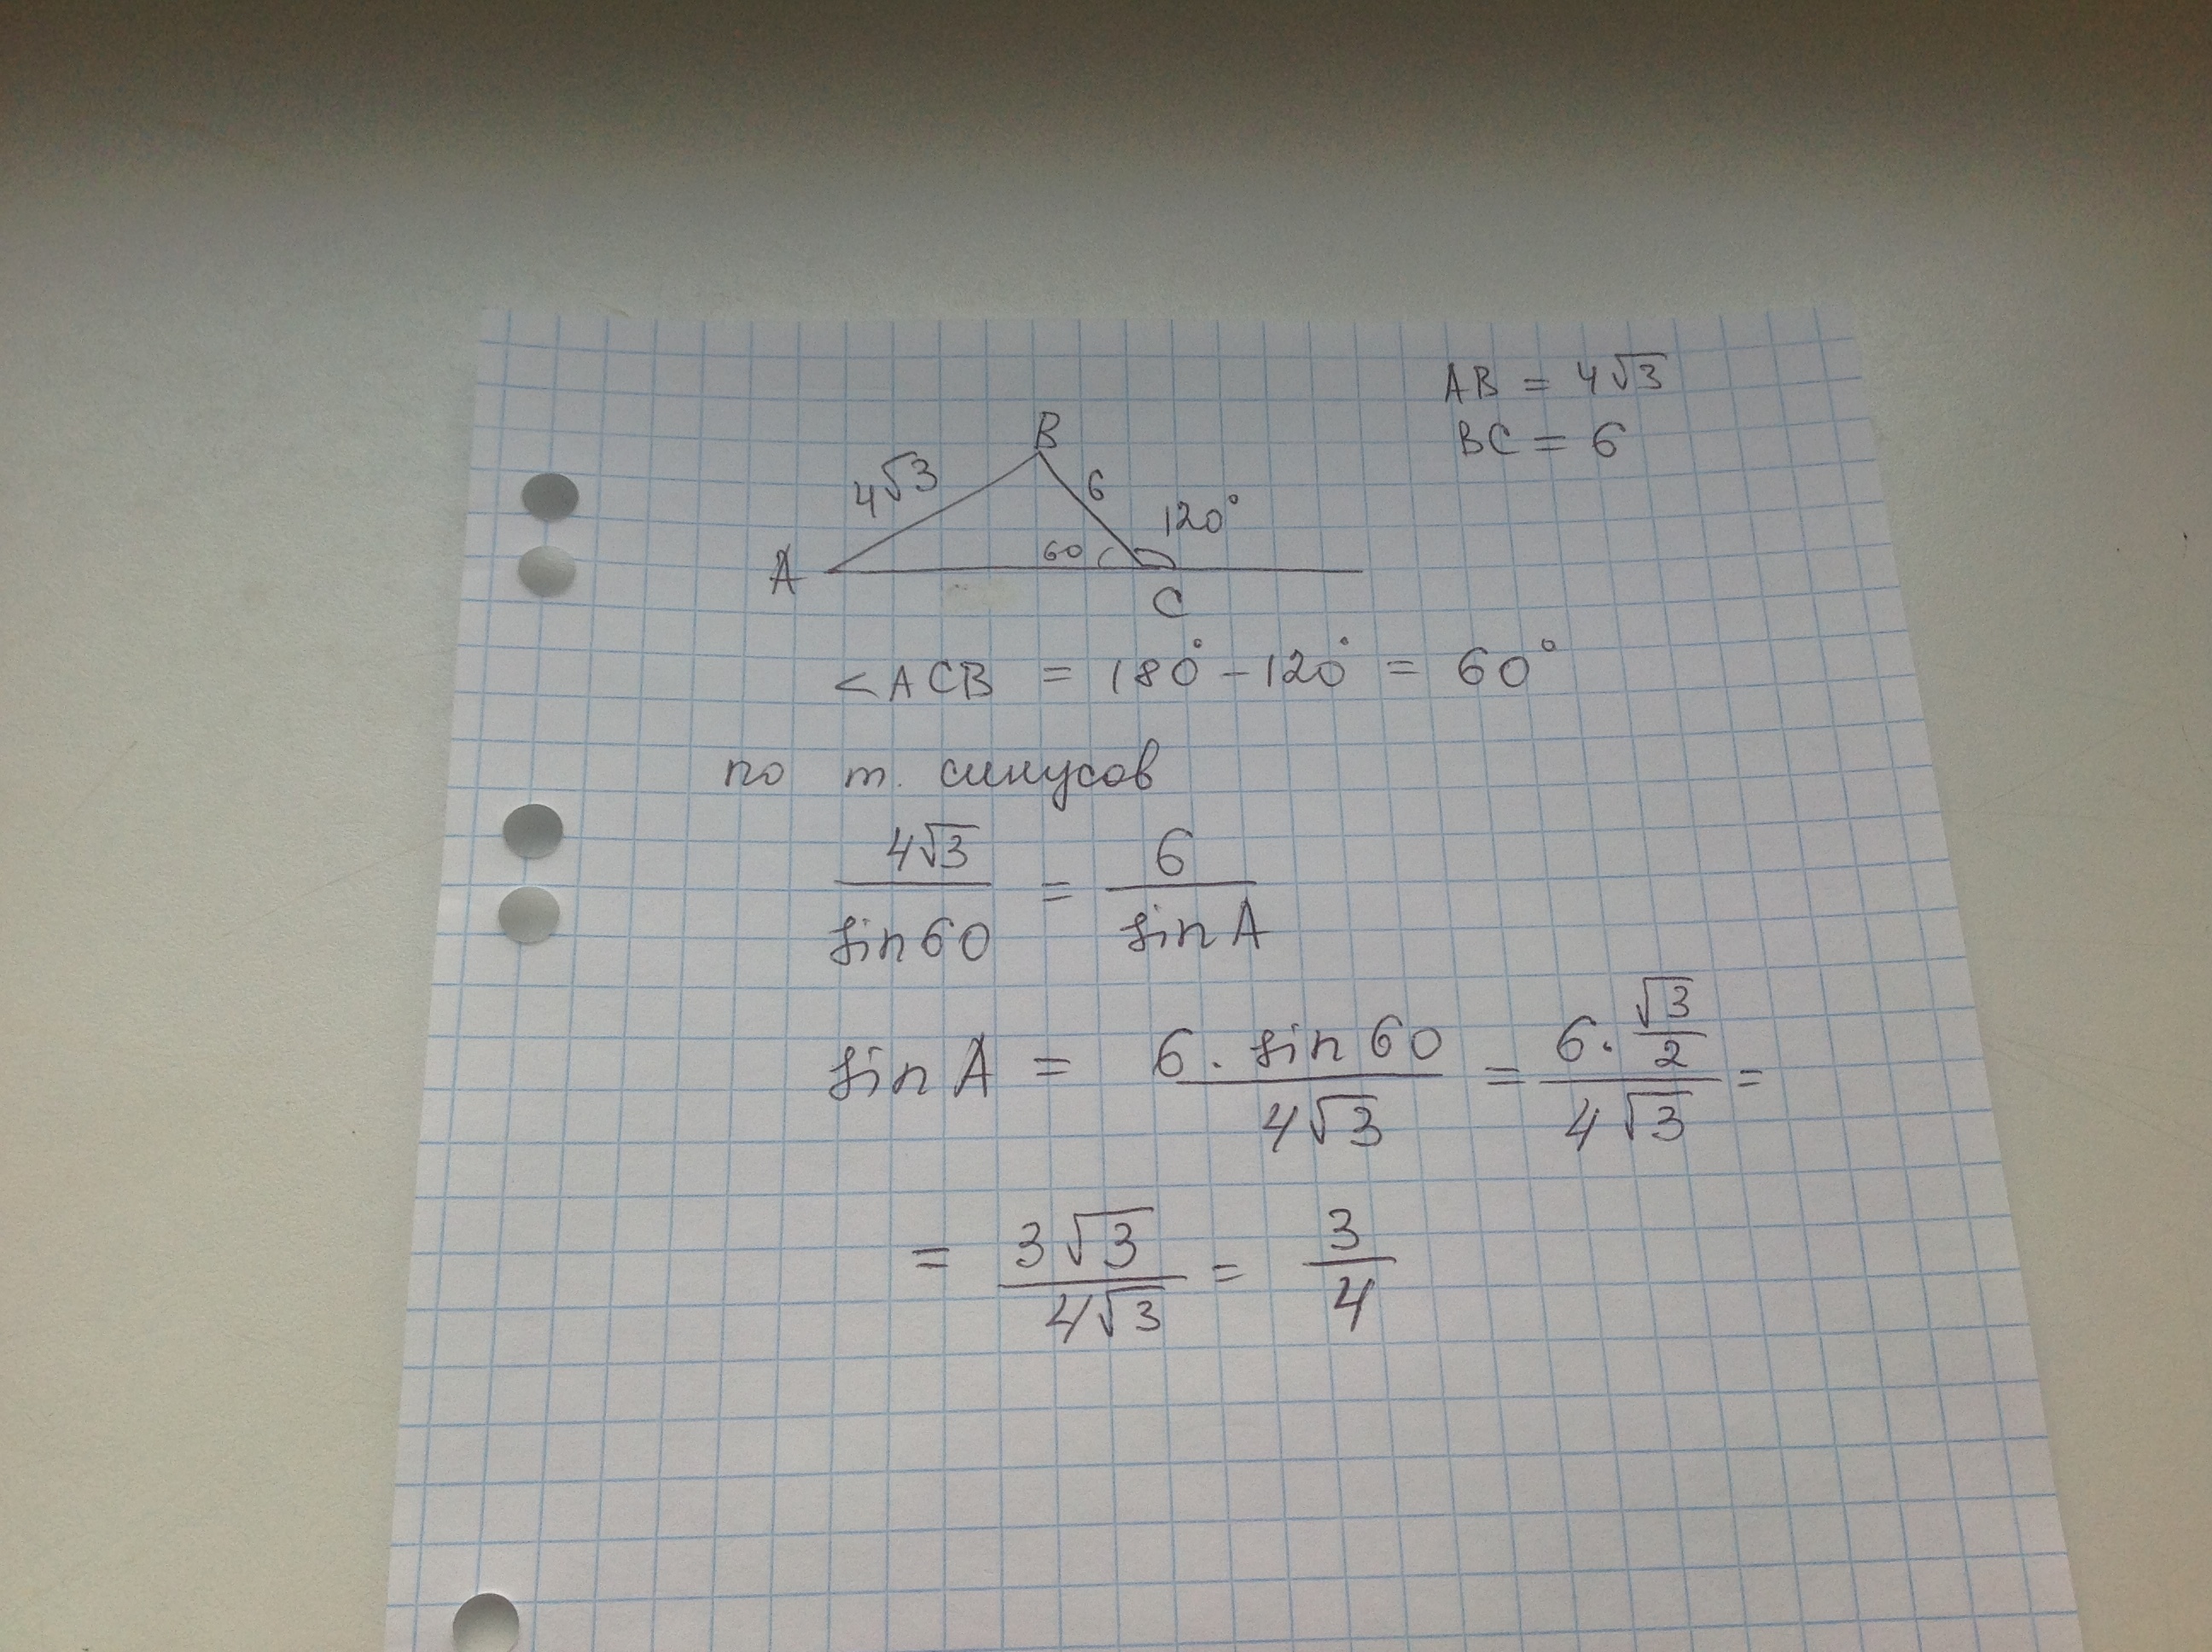 AB = 4√3
BC = 6
B
4√3
6
120°
A
60
C
<ACB = 180° - 120° = 60°
по т. синусов
4√3/sin60 = 6/sin A
sin A = 6 · sin 60/4√3 = 6 · √3/2/4√3 =
= 3√3/4√3 = 3/4